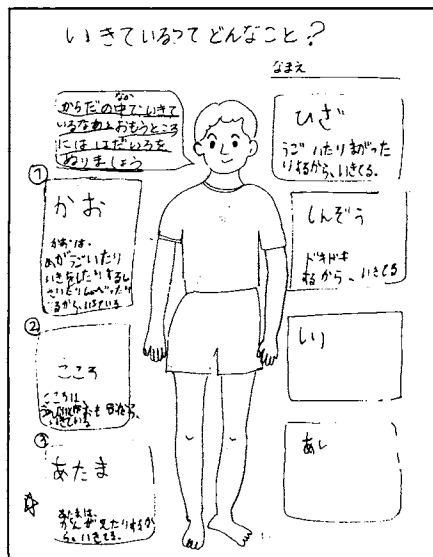 いきているってどんなこと?
なまえ
からだの中で、いきて
なか
いるなあとおもうところ
にははだいろを
ぬりましょう
①
かお
かおは、
めがうごいたり
いきをしたりするし
たりしゃべったり
するから、いきている
②
こころ
こころは、
いきている
③
あたま
あたまは、
かんがえたりするか
ら、いきてる。
ひざ
うごいたりまがった
りするから、いきてる。
しんぞう
ドキドキ
するから、いきてる
しり
あし